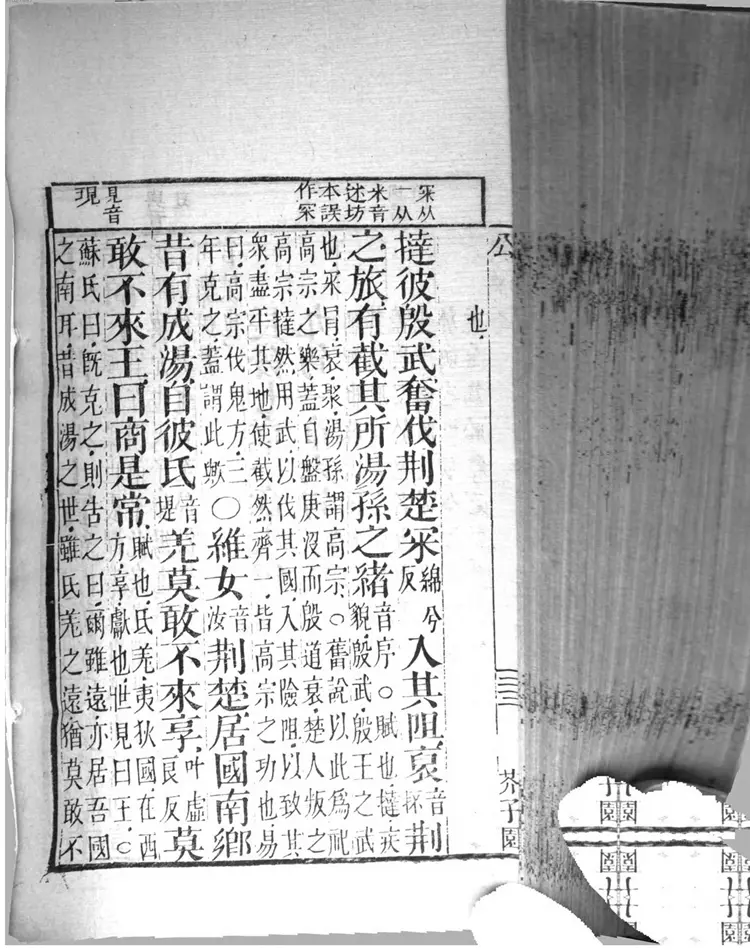 冞从
一从
米音
迷坊
本誤
作罙
見音
現
公
芥子園
也
撻彼殷武奮伐荆楚冞綿兮反入其阻裒音抔荆
之旅有截其所湯孫之緒音序○賦也撻疾貌殷武殷王之武
也冞冒裒聚湯孫謂高宗○舊說以此爲祀
高宗之樂蓋自盤庚沒而殷道衰楚人叛之
高宗撻然用武以伐其國入其險阻以致其
衆盡平其地使截然齊一皆高宗之功也易
曰高宗伐鬼方三年克之蓋謂此歟○維女音汝荆楚居國南鄉
昔有成湯自彼氏音堤羌莫敢不來享叶虛良反莫
敢不來王曰商是常賦也氏羌夷狄國在西方享獻也世見曰王○
蘇氏曰旣克之則告之曰爾雖遠亦居吾國
之南耳昔成湯之世雖氏羌之遠猶莫敢不